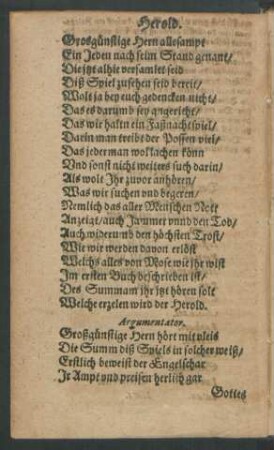 Herold.
Grosgünstige Hern allesampt
Ein Jeden nach seim Stand genant/
Die jtzt alhie versamlet seid
Diß Spiel zusehen seid bereit/
Wolt ja bey euch gedencken nicht/
Das es darumb sey angericht/
Das wir haltn ein Faßnachtspiel/
Darin man treibt der Possen viel/
Das jederman wol lachen könn
Und sonst nicht weiters such darin/
Als wolt Ihr zuvor anhören/
Was wir suchen vnd begeren/
Nemlich das aller Menschen Nott
Anzeigt/auch Jammer vnnd den Tod/
Auch widerumb den höchsten Trost/
Wie wir werden davon erlöst
Welchs alles von Mose wie jhr wist
Im ersten Buch beschrieben ist/
Des Summam jhr jtzt hören solt
Welche erzelen wird der Herold.
Argumentator.
Großgünstige Hern hört mit vleis
Die Summ diß Spiels in solcher weiß/
Erstlich beweist der Engelschar
Jr Ampt vnd preisen herlich gar
Gottes